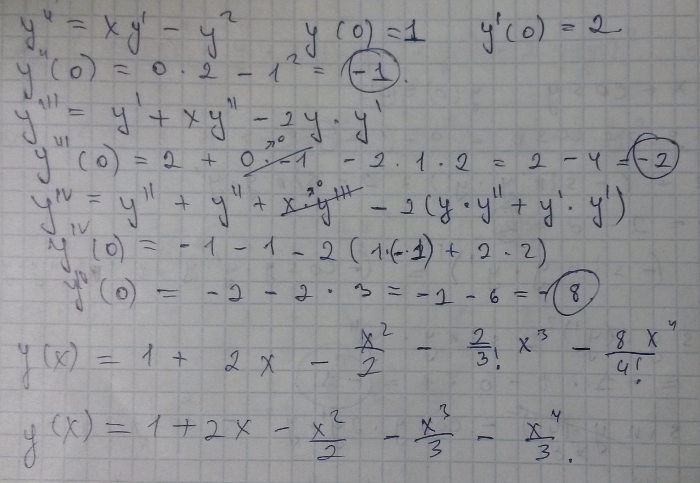 y'' = xy' - y² y(0) = 1 y'(0) = 2
y''(0) = 0 · 2 - 1² = -1.
y''' = y' + xy'' - 2y · y'
y'''(0) = 2 + 0 · -1 →0 - 2 · 1 · 2 = 2 - 4 = -2
y^IV = y'' + y'' + x · y''' →0 - 2(y · y'' + y' · y')
y^IV(0) = -1 - 1 - 2(1·(-1) + 2 · 2)
y^IV(0) = -2 - 2 · 3 = -2 - 6 = -8
y(x) = 1 + 2x - x²/2 - 2/3! x³ - 8x⁴/4!
y(x) = 1 + 2x - x²/2 - x³/3 - x⁴/3.